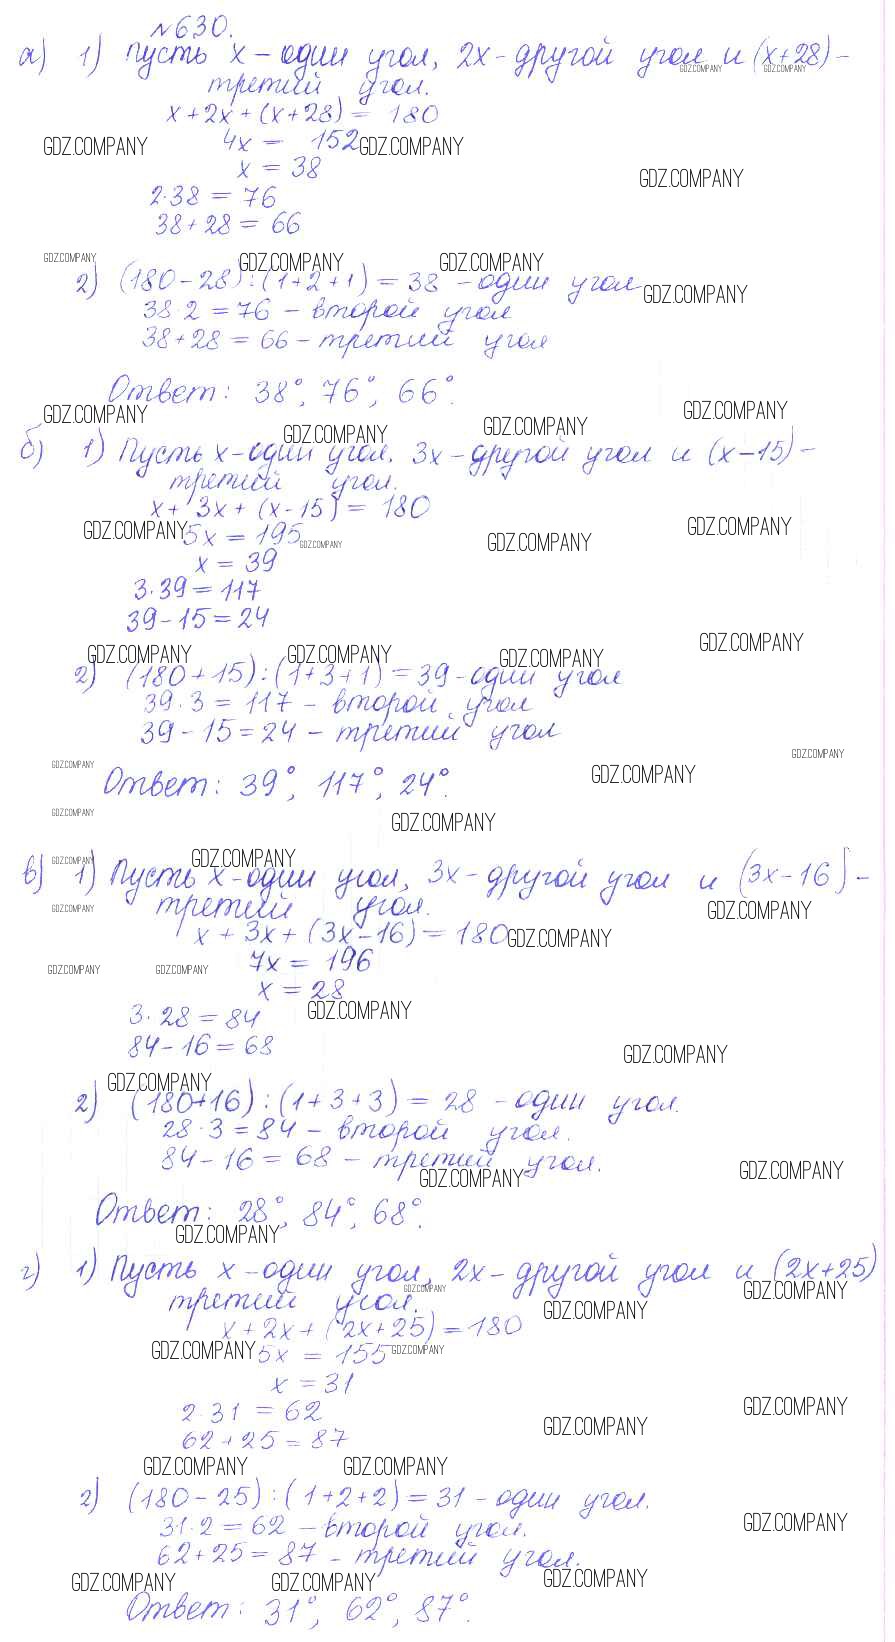 №630.
а) 1) Пусть x - один угол, 2x - другой угол и (x+28) -
третий угол.
x + 2x + (x+28) = 180
4x = 152
x = 38
2·38 = 76
38 + 28 = 66
2) (180 - 28) : (1+2+1) = 38 - один угол
38·2 = 76 - второй угол
38+28 = 66 - третий угол
Ответ: 38°, 76°, 66°.
б) 1) Пусть x - один угол. 3x - другой угол и (x-15) -
третий угол.
x + 3x + (x-15) = 180
5x = 195
x = 39
3·39 = 117
39 - 15 = 24
2) (180+15) : (1+3+1) = 39 - один угол
39·3 = 117 - второй угол
39 - 15 = 24 - третий угол
Ответ: 39°, 117°, 24°.
в) 1) Пусть x - один угол, 3x - другой угол и (3x-16) -
третий угол.
x + 3x + (3x-16) = 180
7x = 196
x = 28
3·28 = 84
84 - 16 = 68
2) (180+16) : (1+3+3) = 28 - один угол.
28·3 = 84 - второй угол.
84 - 16 = 68 - третий угол.
Ответ: 28°, 84°, 68°.
г) 1) Пусть x - один угол, 2x - другой угол и (2x+25)
третий угол.
x + 2x + (2x+25) = 180
5x = 155
x = 31
2·31 = 62
62 + 25 = 87
2) (180 - 25) : (1+2+2) = 31 - один угол.
31·2 = 62 - второй угол.
62+25 = 87 - третий угол.
Ответ: 31°, 62°, 87°.
GDZ.COMPANY